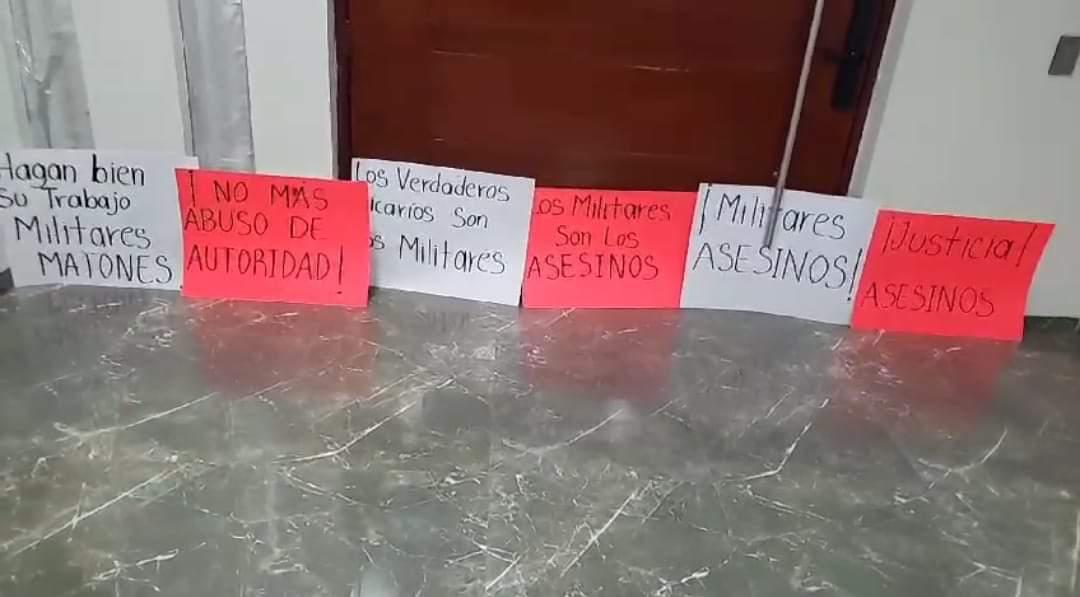 Hagan bien
Su Trabajo
Militares
MATONES
¡NO MÁS
ABUSO DE
AUTORIDAD!
Los Verdaderos
icarios Son
os Militares
Los Militares
Son Los
ASESINOS
¡Militares
ASESINOS!
¡Justicia!
ASESINOS